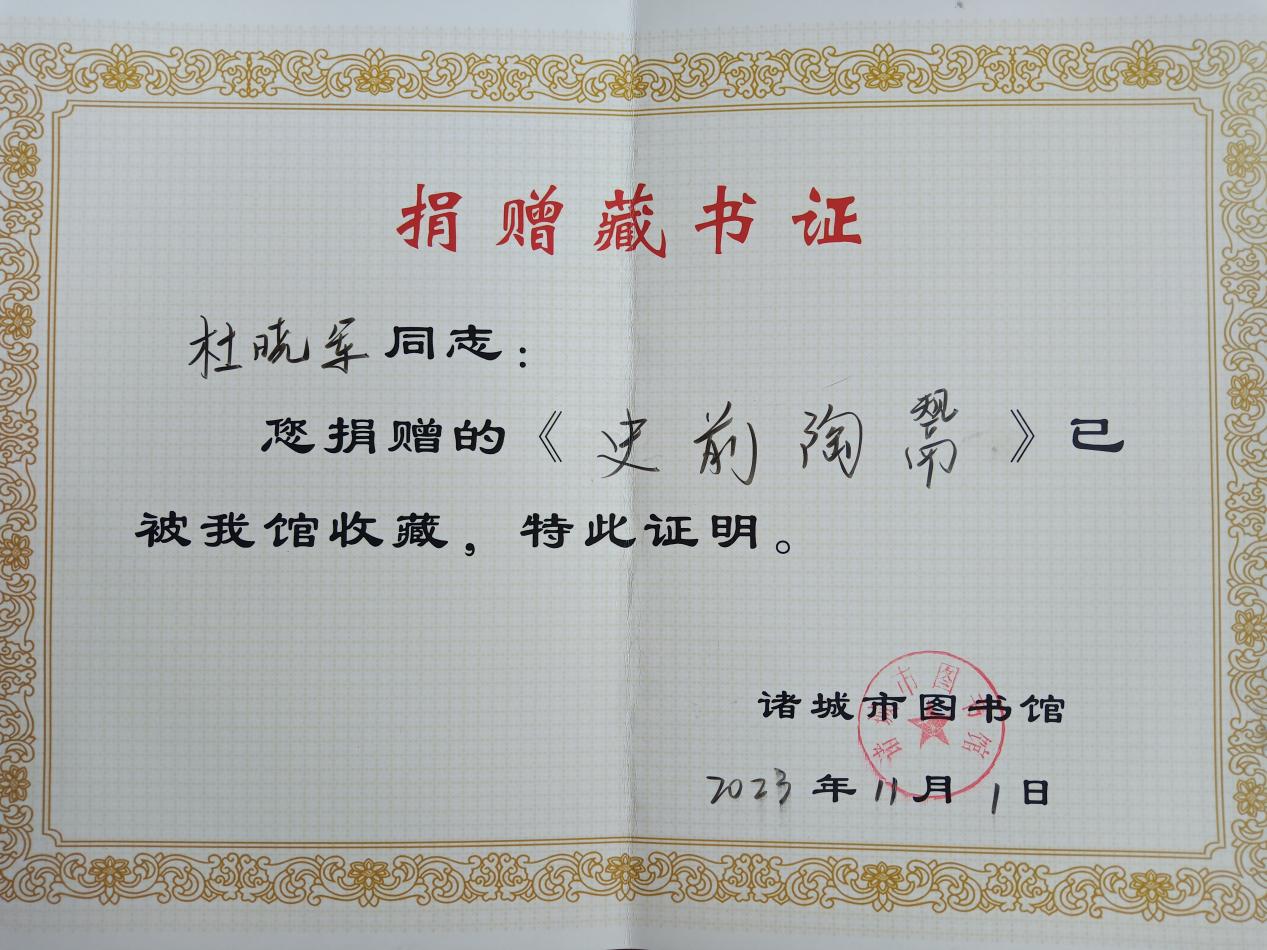 捐赠藏书证
杜晓军同志：
您捐赠的《史前陶鬶》已
被我馆收藏，特此证明。
诸城市图书馆
诸城市图书馆
2023年11月1日